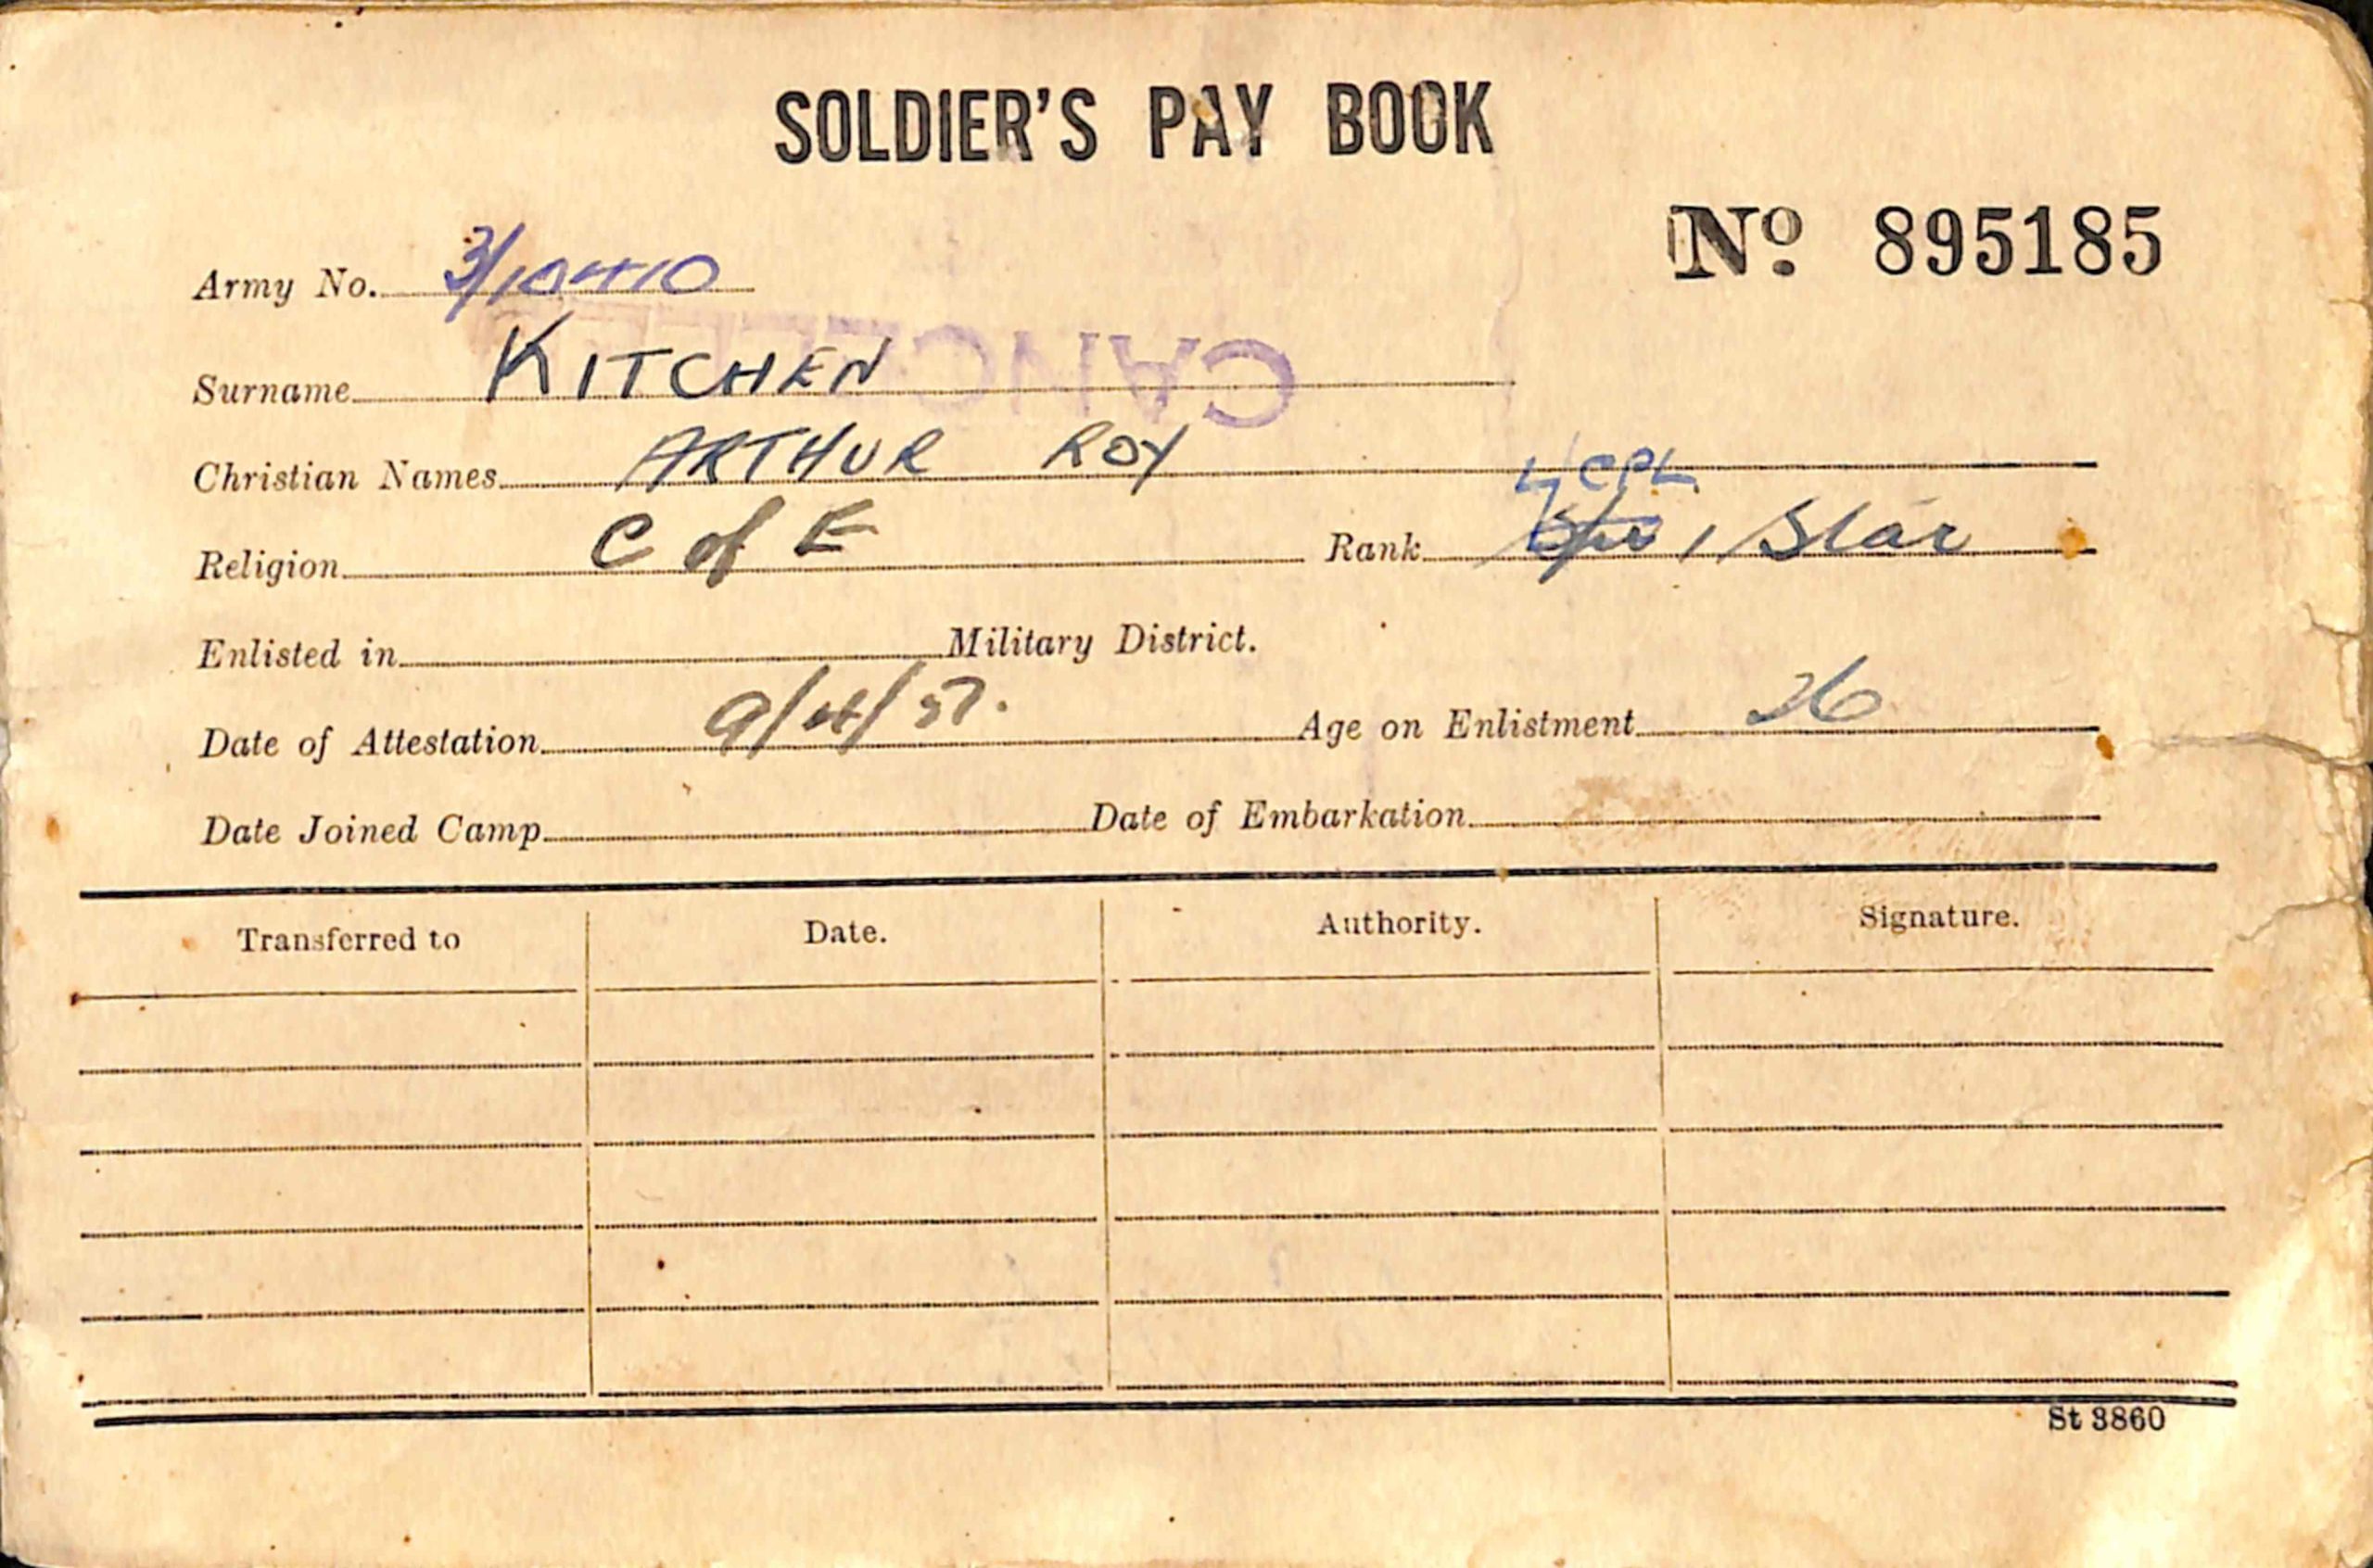 SOLDIER'S PAY BOOK
Nº 895185
Army No. 3/10410
CANCELLED
Surname KITCHEN
Christian Names ARTHUR ROY
L/CPL
Religion C of E Rank Spr 1 Star
Enlisted in Military District.
Date of Attestation 9/4/57. Age on Enlistment 26
Date Joined Camp Date of Embarkation
Transferred to Date. Authority. Signature.
St 3860